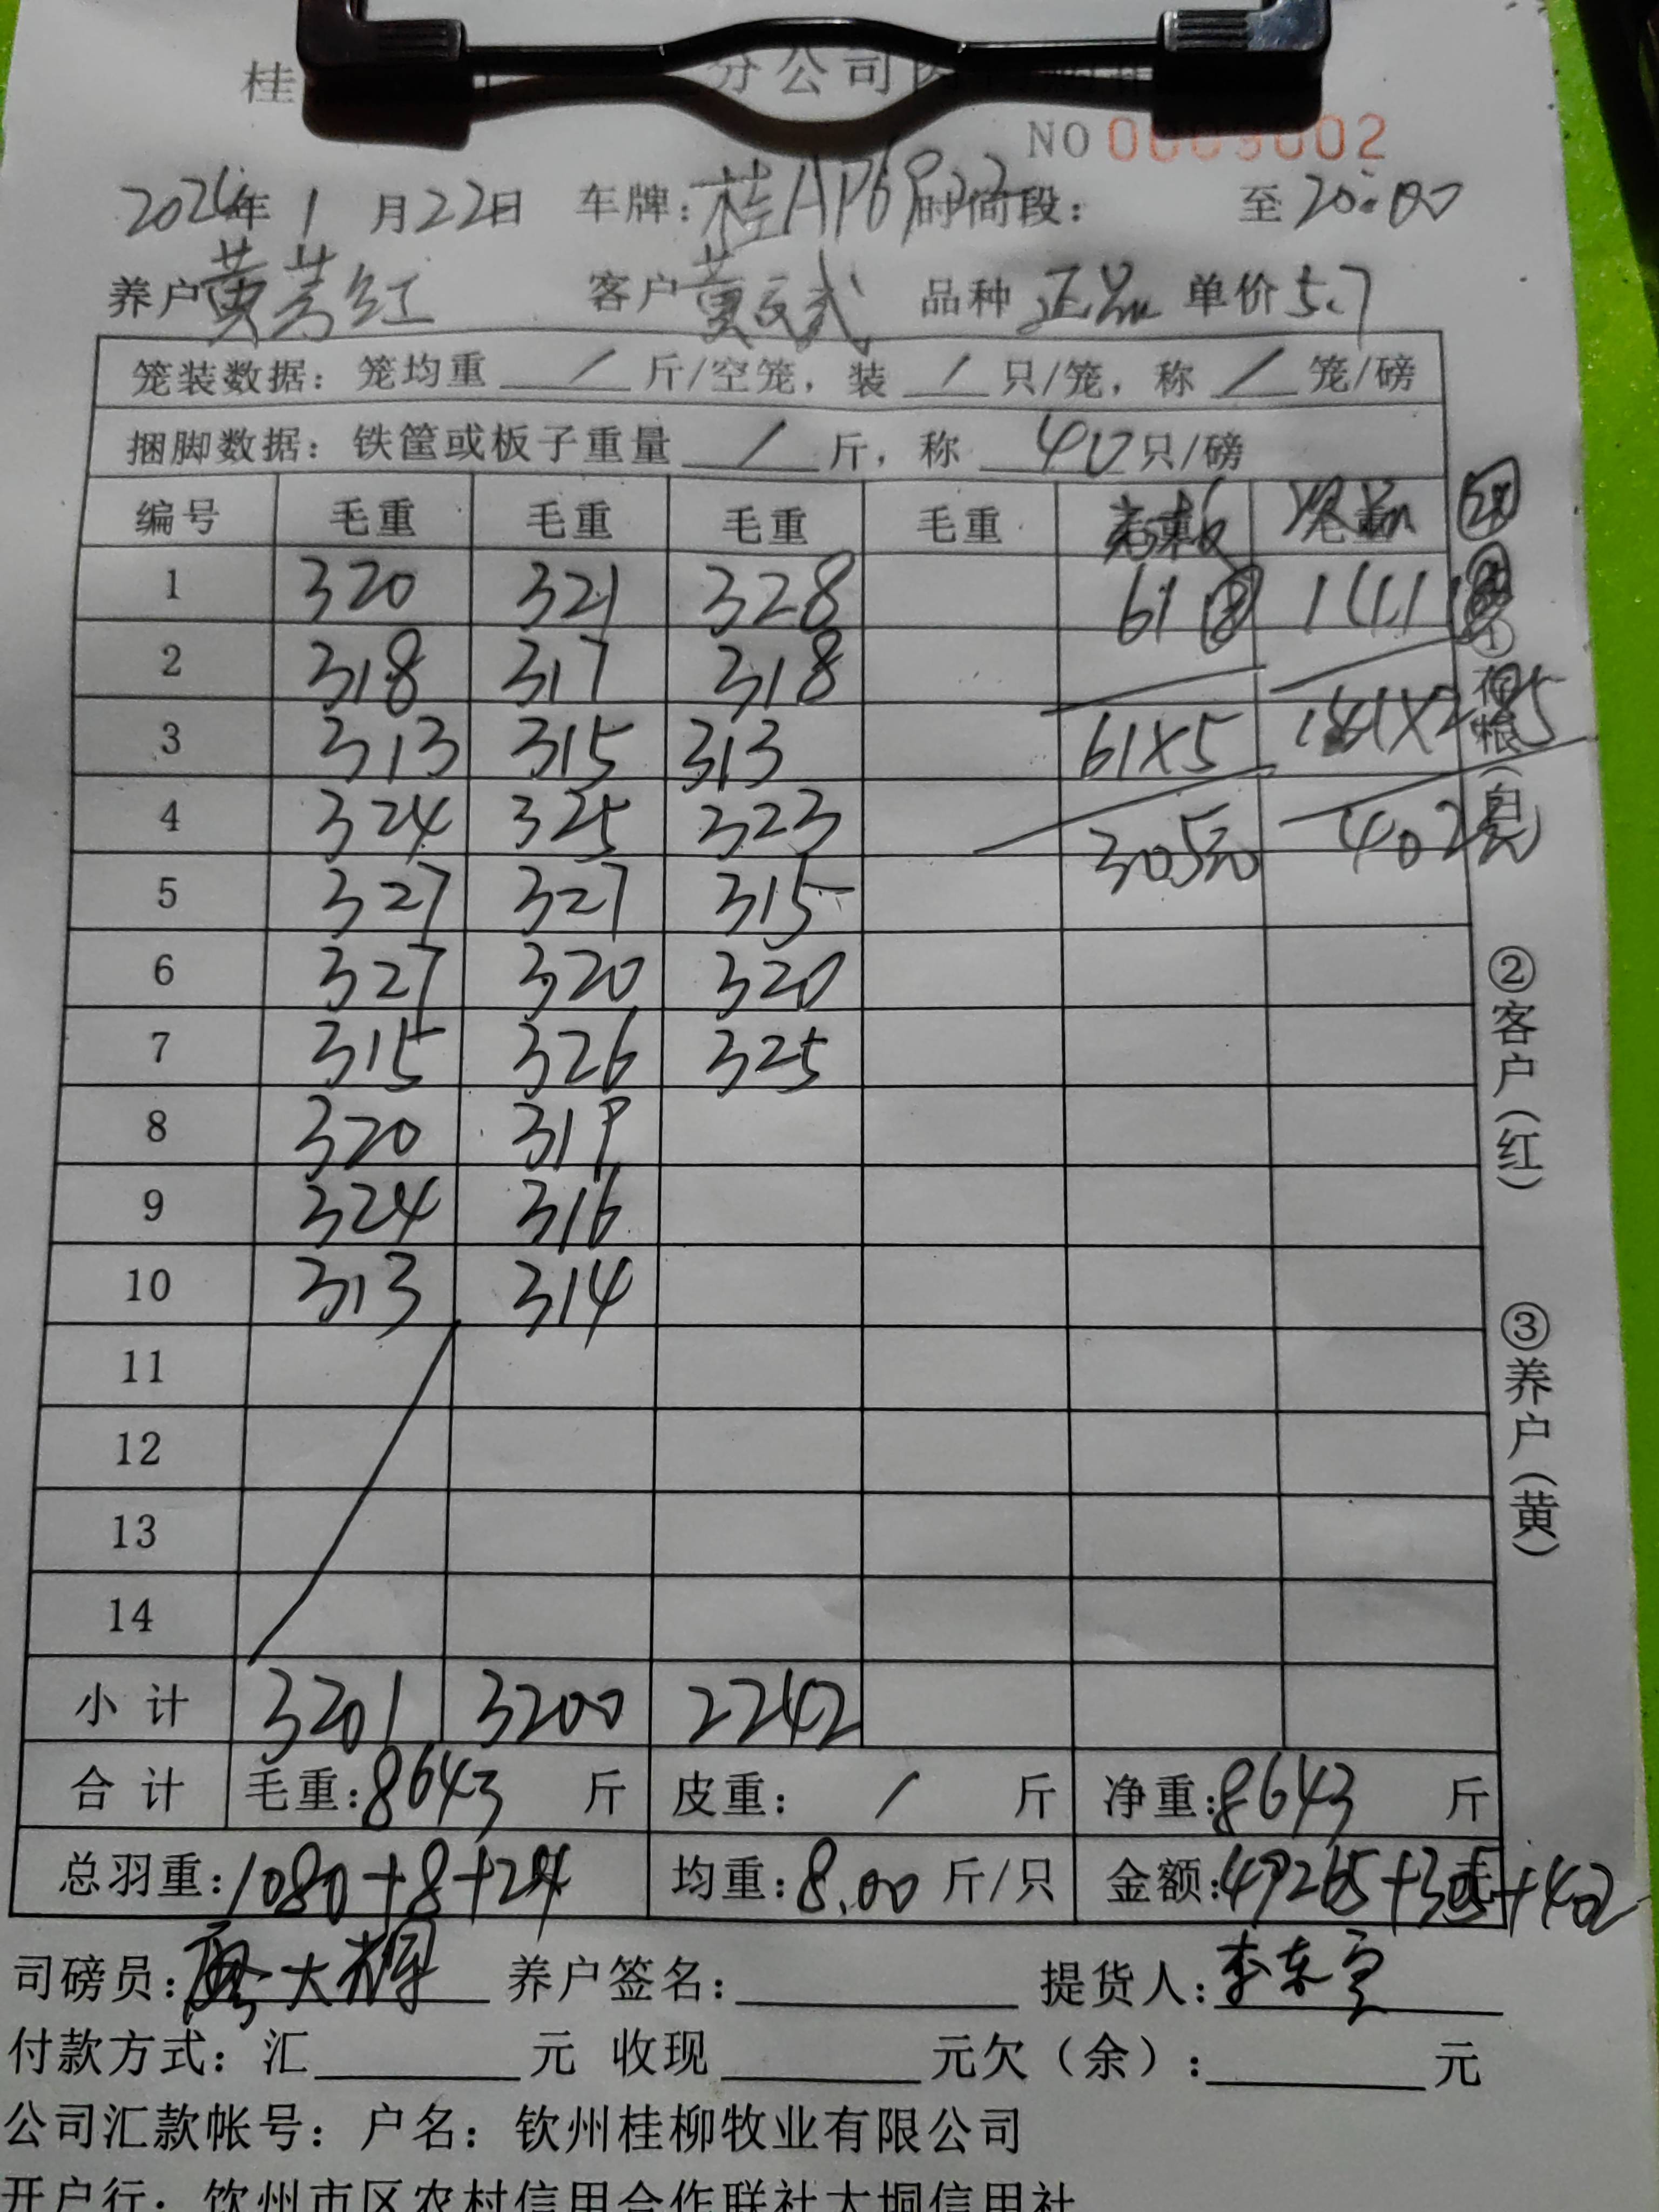 桂 分公司
NO 0009002
2024年 1 月 22日 车牌: 桂AP69 时间段: 至 20:00
养户 黄芳红 客户 黄文武 品种 正品 单价 5.7
笼装数据: 笼均重 / 斤/空笼, 装 / 只/笼, 称 / 笼/磅
捆脚数据: 铁筐或板子重量 / 斤, 称 40 只/磅
编号 毛重 毛重 毛重 毛重
1 320 321 328 61 ⑧ 141
2 318 317 318
3 313 315 313 61×5 141×2.85
4 324 325 323 305元 402元
5 327 327 315
6 327 320 320
7 315 326 325
8 320 319
9 324 316
10 313 314
11
12
13
14
小计 3201 3200 2242
合计 毛重: 8643 斤 皮重: / 斤 净重: 8643 斤
总羽重: 1080+8+24 均重: 8.00 斤/只 金额: 49265+305+402
司磅员: 大 养户签名: 提货人: 李东
付款方式: 汇 元 收现 元欠(余): 元
公司汇款帐号: 户名: 钦州桂柳牧业有限公司
开户行: 钦州市区农村信用合作联社大垌信用社
(白)
②客户(红)
③养户(黄)